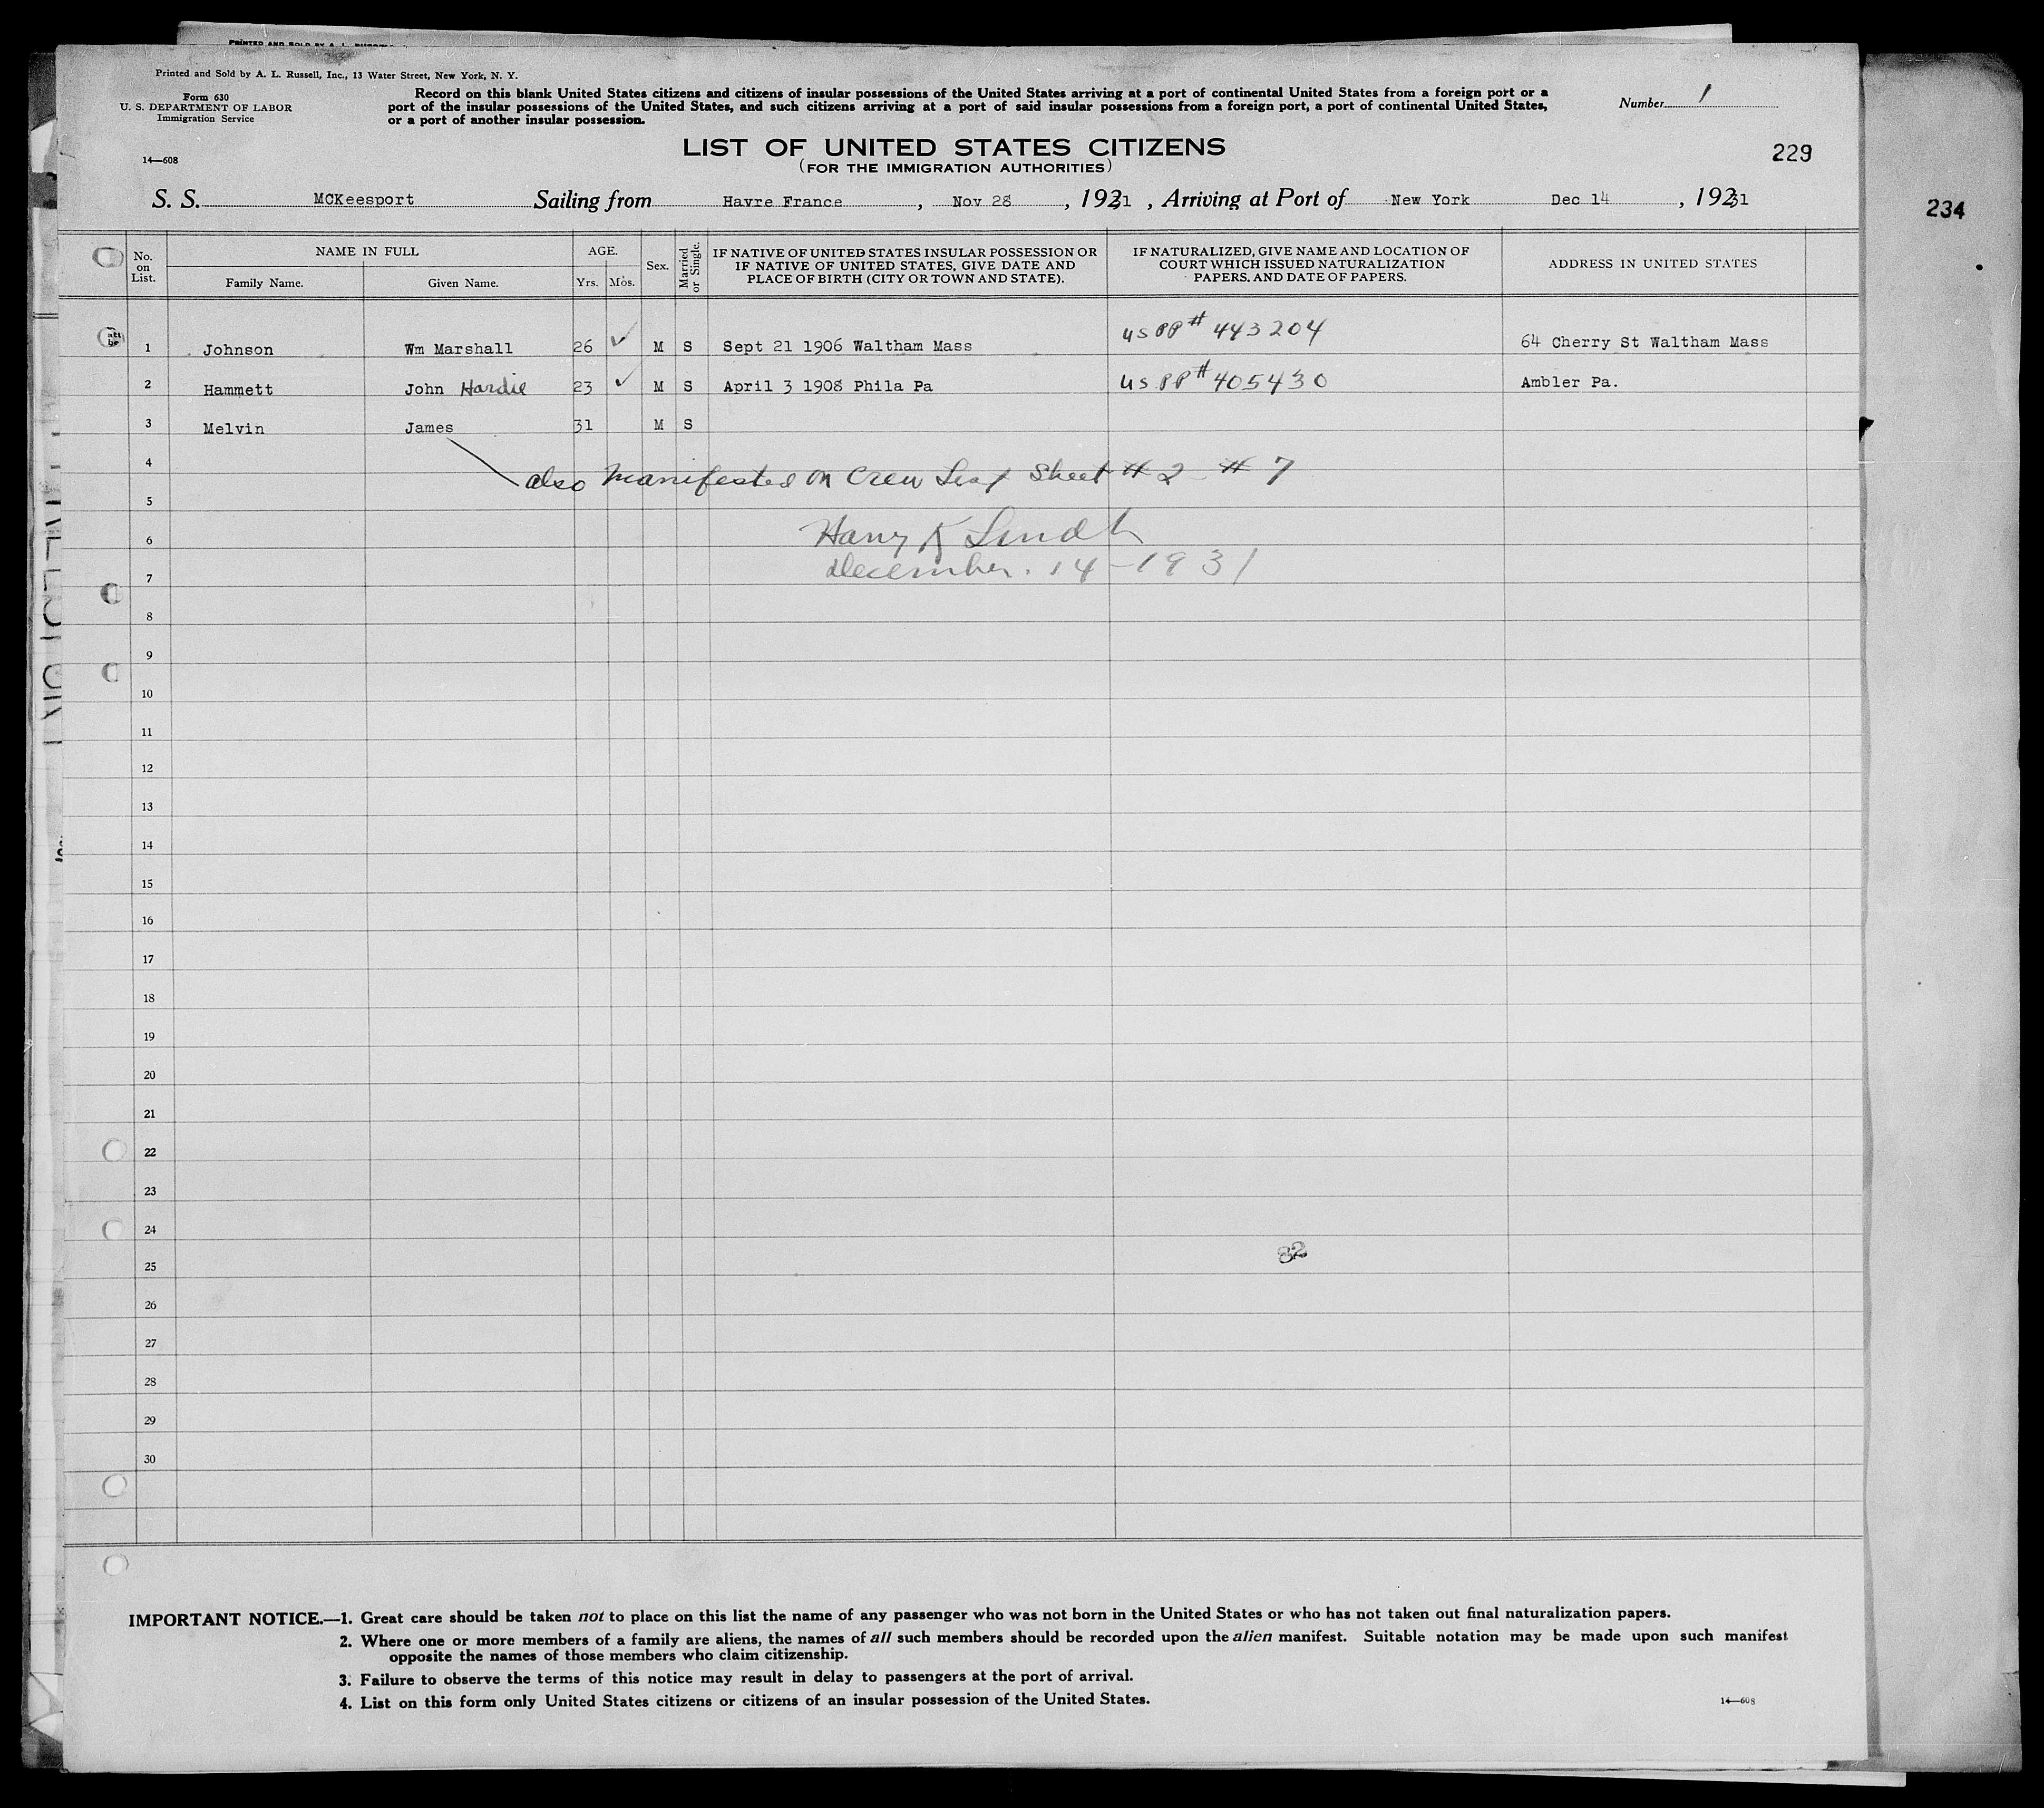 PRINTED AND SOLD BY A. L.
Printed and Sold by A. L. Russell, Inc., 13 Water Street, New York, N. Y.
Form 630
U. S. DEPARTMENT OF LABOR
Immigration Service
14—608
Record on this blank United States citizens and citizens of insular possessions of the United States arriving at a port of continental United States from a foreign port or a
port of the insular possessions of the United States, and such citizens arriving at a port of said insular possessions from a foreign port, a port of continental United States,
or a port of another insular possession.
Number 1
LIST OF UNITED STATES CITIZENS
(FOR THE IMMIGRATION AUTHORITIES)
229
234
S. S. MCKeesport Sailing from Havre France, Nov 28, 1931, Arriving at Port of New York Dec 14, 1931
No. on List. NAME IN FULL AGE. Sex. Married or Single. IF NATIVE OF UNITED STATES INSULAR POSSESSION OR IF NATIVE OF UNITED STATES, GIVE DATE AND PLACE OF BIRTH (CITY OR TOWN AND STATE). IF NATURALIZED, GIVE NAME AND LOCATION OF COURT WHICH ISSUED NATURALIZATION PAPERS, AND DATE OF PAPERS. ADDRESS IN UNITED STATES
Family Name. Given Name. Yrs. Mos.
1 Johnson Wm Marshall 26 ✓ M S Sept 21 1906 Waltham Mass US PP # 443204 64 Cherry St Waltham Mass
2 Hammett John Hardie 23 ✓ M S April 3 1908 Phila Pa US PP # 405430 Ambler Pa.
3 Melvin James 31 M S
4 also Manifested on Crew List Sheet # 2 # 7
5
6 Harry K
7 December. 14 - 1931
8
9
10
11
12
13
14
15
16
17
18
19
20
21
22
23
24
32
25
26
27
28
29
30
IMPORTANT NOTICE.—1. Great care should be taken not to place on this list the name of any passenger who was not born in the United States or who has not taken out final naturalization papers.
2. Where one or more members of a family are aliens, the names of all such members should be recorded upon the alien manifest. Suitable notation may be made upon such manifest
opposite the names of those members who claim citizenship.
3. Failure to observe the terms of this notice may result in delay to passengers at the port of arrival.
4. List on this form only United States citizens or citizens of an insular possession of the United States.
14—608